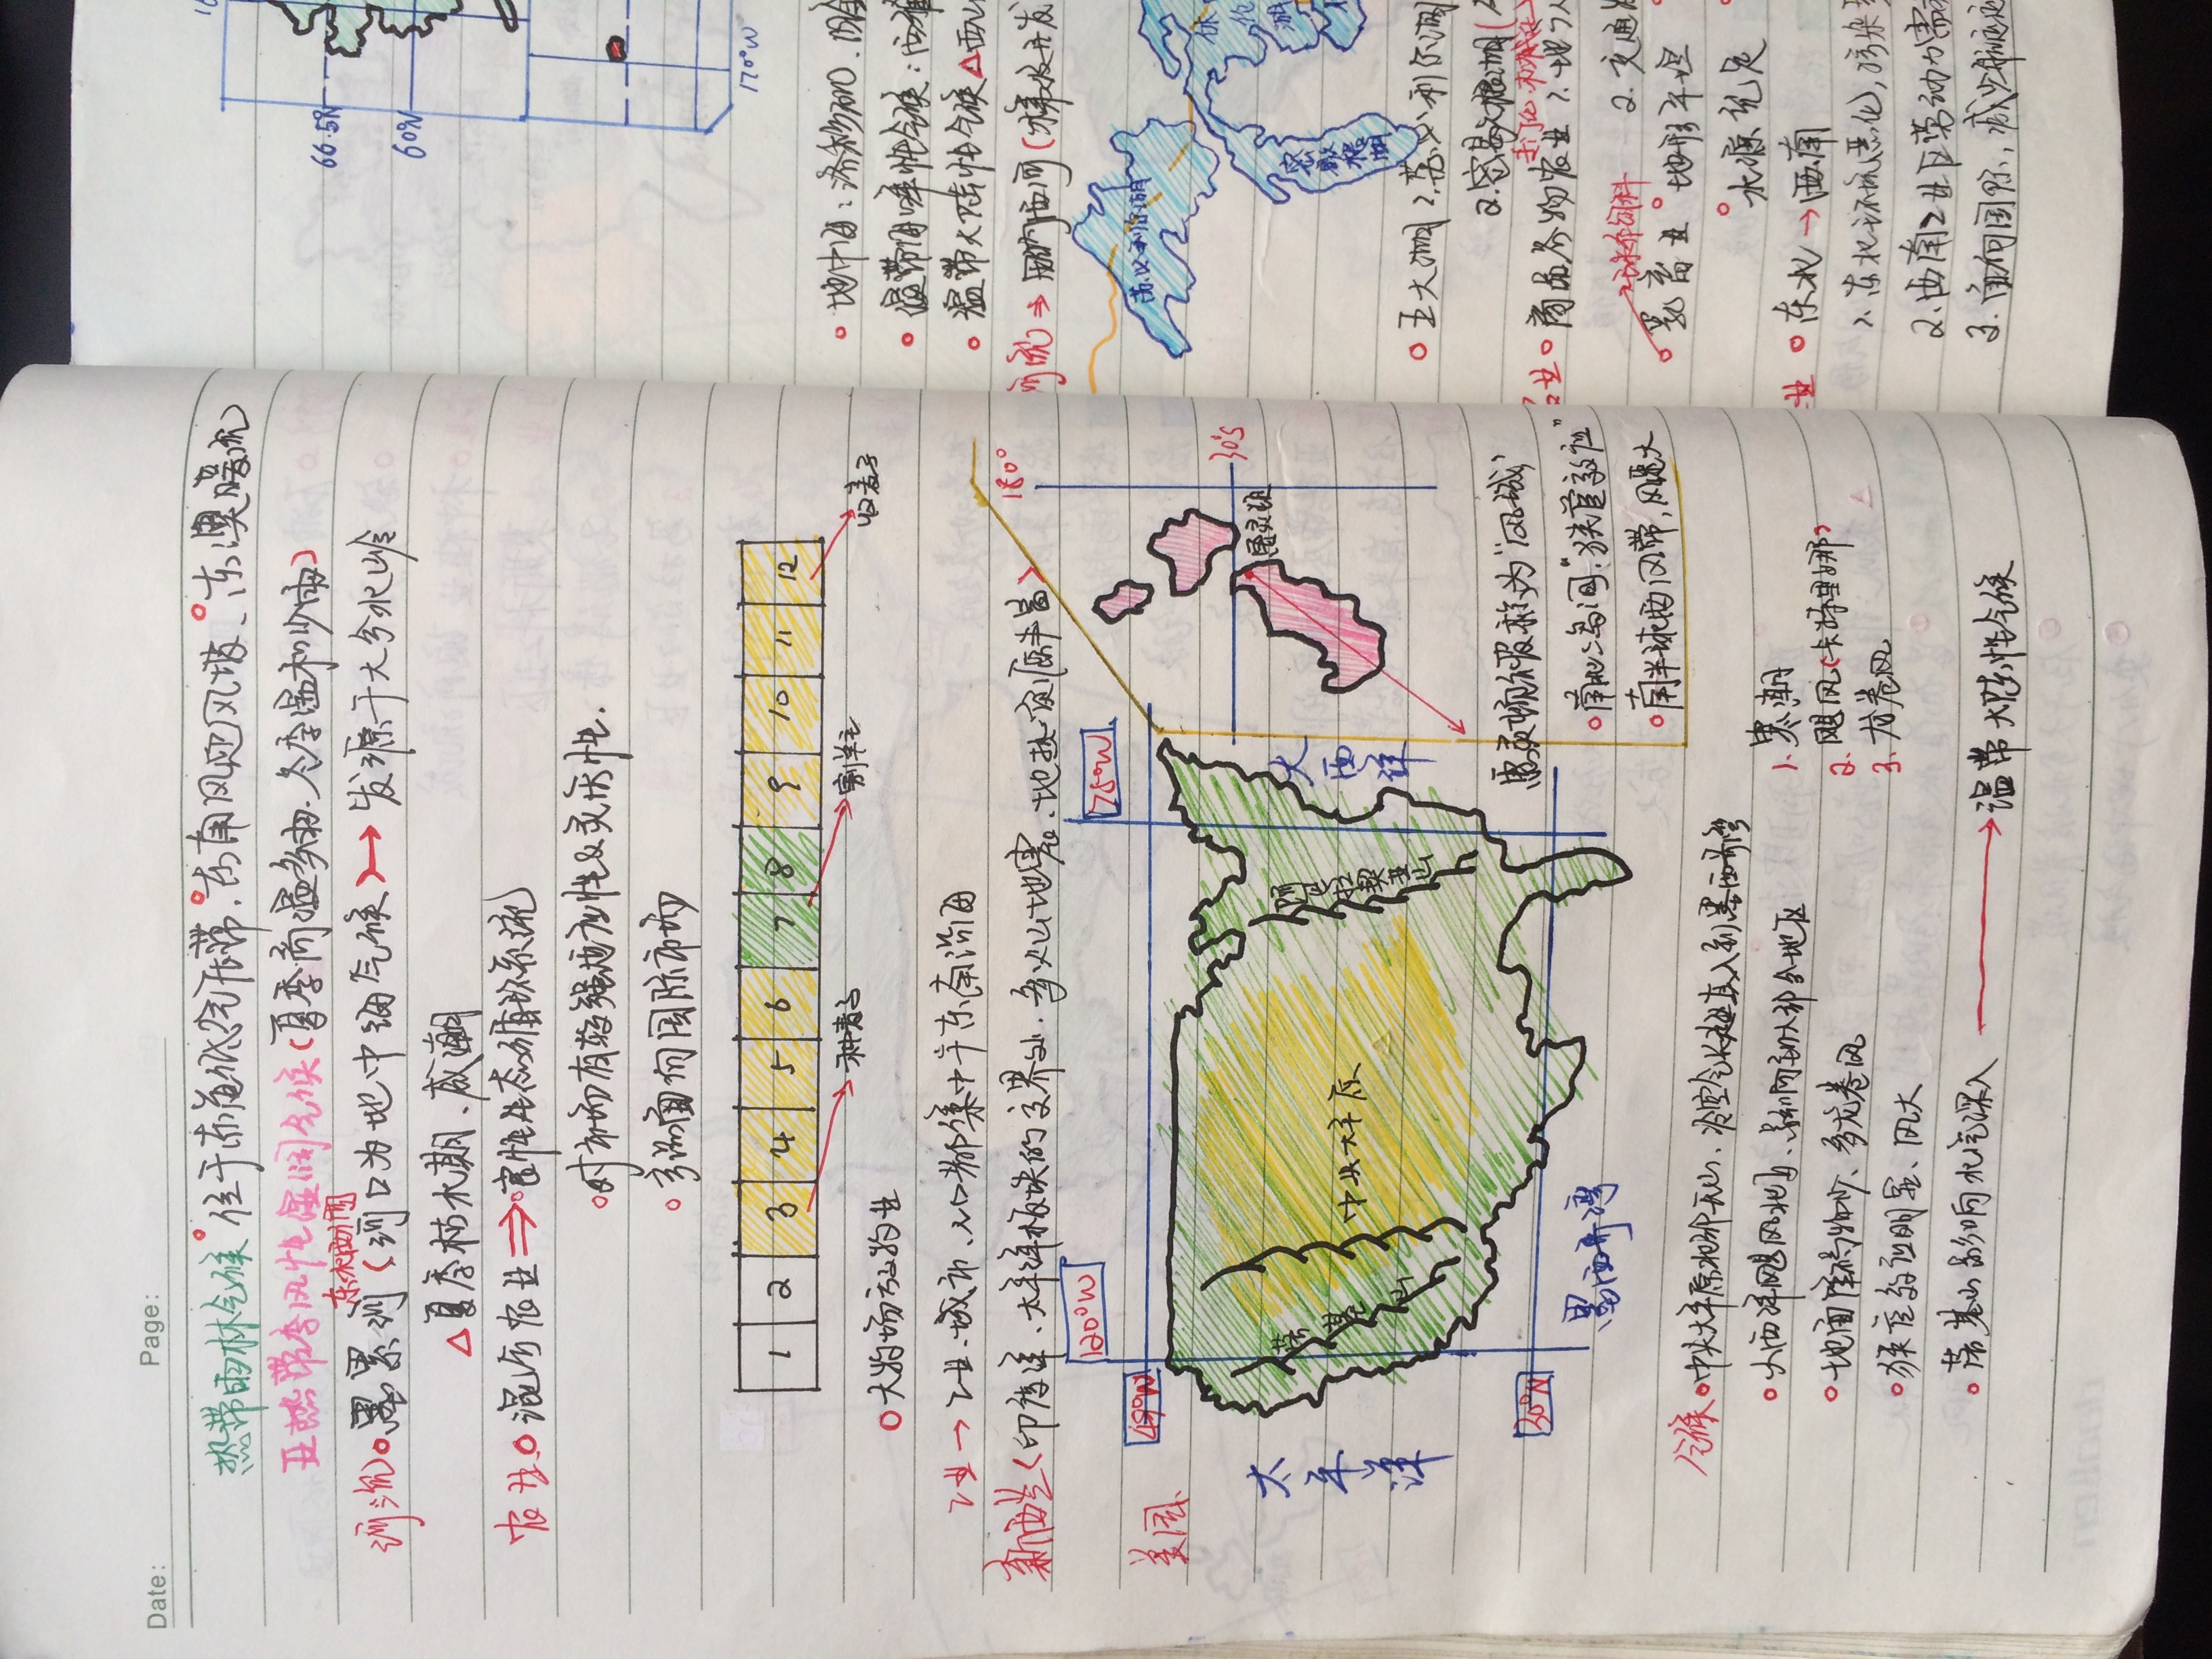 Date: Page:
热带雨林气候 位于赤道低气压带、东南风迎风坡、东澳暖流
亚热带季风性湿润气候(夏季高温多雨、冬季温和少雨)
东水西调
河流 墨累河(河口为地中海气候)→发源于大分水岭
△夏季枯水期、咸潮
农业 混合农业⇒良性生态循环系统
对市场有较强适应性&灵活性.
产品面向国际市场
1 2 3 4 5 6 7 8 9 10 11 12
种麦子 割羊毛 收麦子
大牧场放牧业
工业→工业、城市、人口都集中于东南沿海
新西兰(印度洋、太平洋板块的交界处、多火山地震、地热资源丰富)
180°
120°W 75°W
49°W
美国
30°S
惠灵顿
太平洋
落基山
中央大平原
阿巴拉契亚山
大西洋
30°N
墨西哥湾
惠灵顿被称为“风城”
南北二岛间,“狭管效应”
南半球西风带,风速大
气候 中央大平原北部无山、冷空气长驱直入到墨西哥湾
大西洋飓风北上、影响到大部分地区
地面障碍物少、多龙卷风
狭管效应明显、风大
落基山影响水汽深入 → 温带大陆性气候
1. 寒潮
2. 飓风(卡特里娜)
3. 龙卷风
66.5N
60N
170°W
地中海:洛杉矶、旧金
温带海洋性气候:西雅
温带大陆性气候△西
河流⇒田纳西河(梯级开发
苏必利尔湖
休伦湖
密歇根湖
五大湖 1.苏必利尔湖
2.密歇根湖(
农业 商品谷物农业 1.地
2.交通
乳畜业 地形平坦
水源充足
业 东北→西南
1.东北环境恶化,污染
2.西南工业区劳动力需
3.面向国际,减少航运